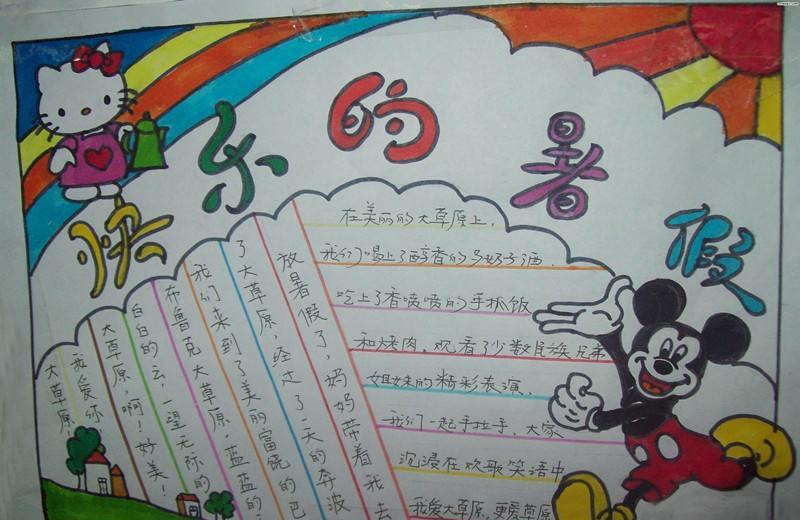 快乐的暑假
放暑假了，妈妈带着我去
了大草原，经过了天的奔波
我们来到了美丽富饶的巴
布鲁克大草原，蓝蓝的
白白的云，一望无际的
大草原，啊！好美！
我爱你
大草原
在美丽的大草原上，
我们喝上了醇香的马奶子酒，
吃上了香喷喷的手抓饭
和烤肉，观看了少数民族兄弟
姐妹的精彩表演，
我们一起手拉手，大家
沉浸在欢歌笑语中
我爱大草原，更爱草原